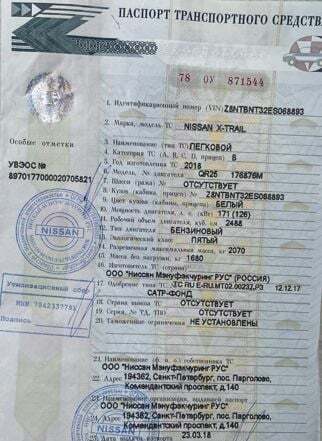 ПАСПОРТ ТРАНСПОРТНОГО СРЕДСТВА
78 ОУ 871544
1. Идентификационный номер (VIN) Z8NTBNT32ES068893
2. Марка, модель ТС NISSAN X-TRAIL
3. Наименование (тип ТС) ЛЕГКОВОЙ
4. Категория ТС (А, В, С, D, прицеп) B
5. Год изготовления ТС 2018
Особые отметки
6. Модель, № двигателя QR25
УВЭОС №
7. Шасси (рама) № ОТСУТСТВУЕТ
8970177000020705821
8. Кузов (кабина, прицеп) № Z8NTBNT32ES068893
9. Цвет кузова (кабины, прицепа) БЕЛЫЙ
10. Мощность двигателя, л. с. (кВт) 171 (126)
11. Рабочий объем двигателя, куб. см 2488
12. Тип двигателя БЕНЗИНОВЫЙ
13. Экологический класс ПЯТЫЙ
14. Разрешенная максимальная масса, кг 2070
15. Масса без нагрузки, кг 1680
16. Изготовитель ТС (страна)
ООО "Ниссан Мэнуфэкчуринг РУС" (РОССИЯ)
17. Одобрение типа ТС № ТС RU E-RU.MT02.00232.Р3 12.12.17
САТР-ФОНД
18. Страна вывоза ТС ОТСУТСТВУЕТ
19. Серия, № ТД, ТПО ОТСУТСТВУЕТ
20. Таможенные ограничения НЕ УСТАНОВЛЕНЫ
NISSAN
Утилизационный сбор
ИНН 7842337791
Подпись
21. Наименование (ф. и. о.) собственника ТС
ООО "Ниссан Мэнуфэкчуринг РУС"
22. Адрес 194362, Санкт-Петербург, пос. Парголово,
Комендантский проспект, д.140
23. Наименование организации, выдавшей паспорт
ООО "Ниссан Мэнуфэкчуринг РУС"
24. Адрес 194362, Санкт-Петербург, пос. Парголово,
Комендантский проспект, д.140
25. Дата выдачи паспорта 23.03.18
NISSAN